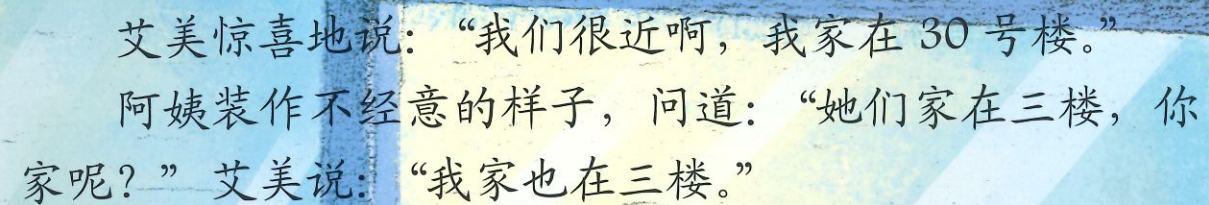 艾美惊喜地说：“我们很近啊，我家在 30 号楼。”
阿姨装作不经意的样子，问道：“她们家在三楼，你
家呢？”艾美说：“我家也在三楼。”